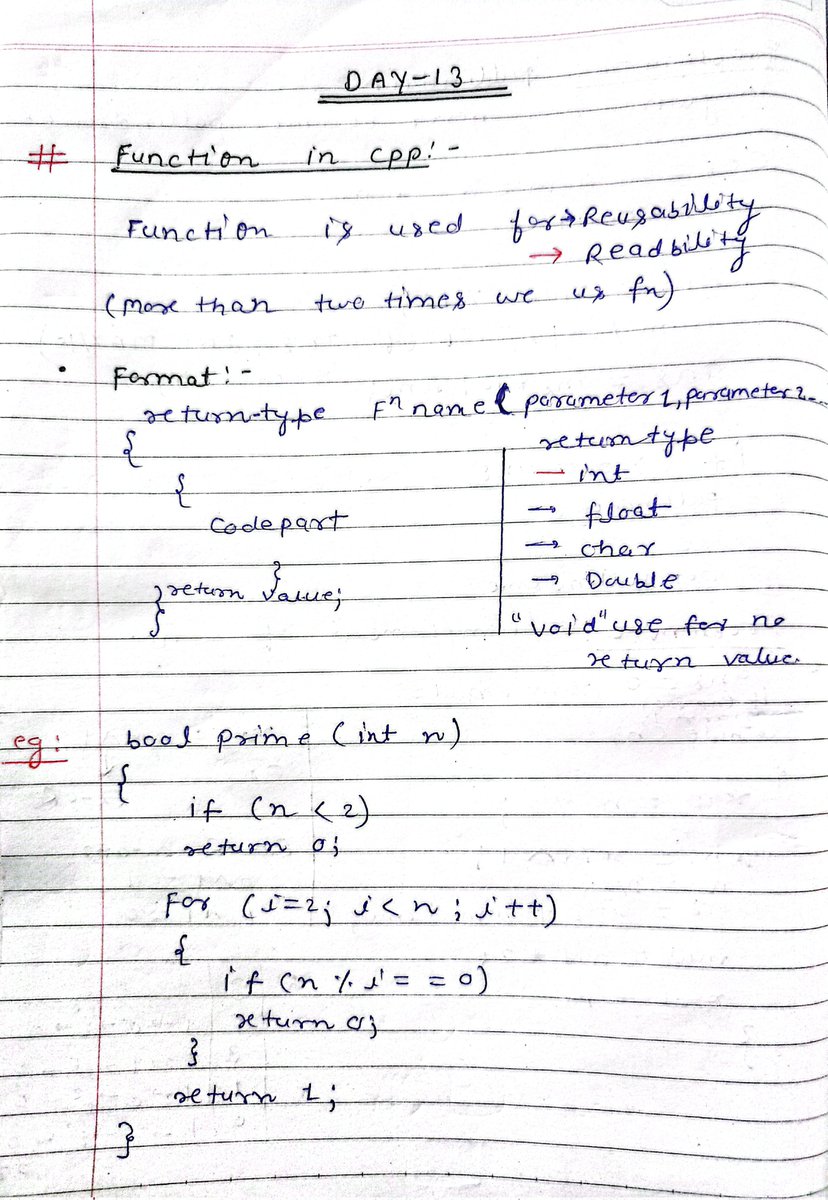 DAY-13
# Function in cpp:-
Function is used for → Reusability
→ Readbility
(more than two times we us fn)
• Format:-
return-type Fⁿ name ( parameter 1, parameter 2...
{
{
Codepart
}
return value;
}
}
return type
— int
→ float
→ char
→ Double
"void" use for no
return value.
eg: bool prime (int n)
{
if (n < 2)
return 0;
For (i=2; i < n ; i++)
{
if (n % i = = 0)
return 0;
}
return 1;
}